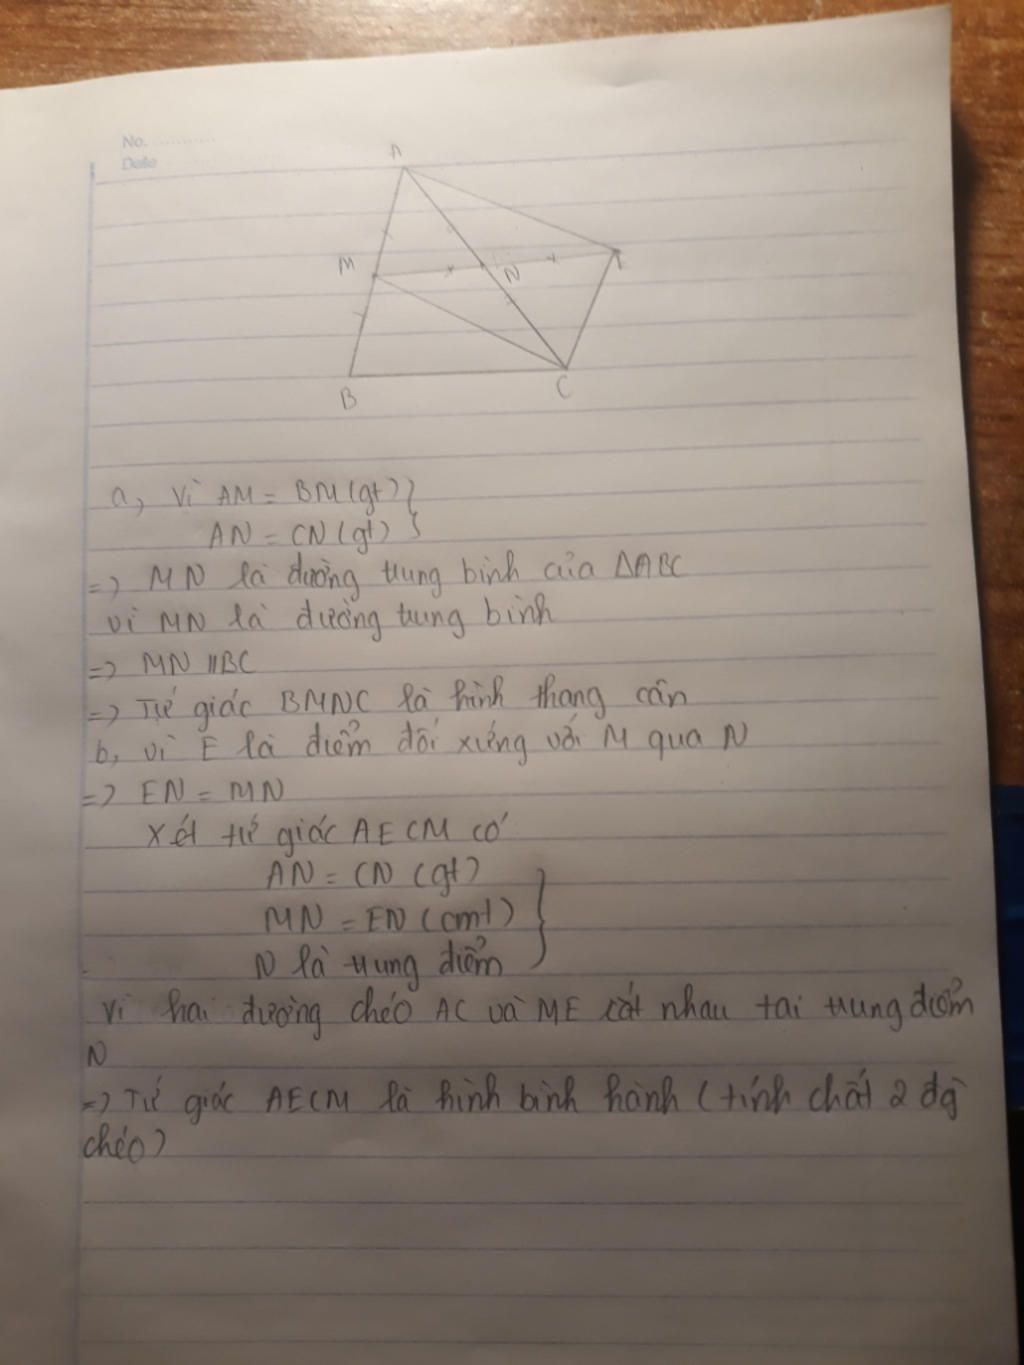 No. ............
Date
A
M
N
E
B
C
a, Vì AM = BM (gt)
AN = CN (gt)
=> MN là đường trung bình của ΔABC
vì MN là đường trung bình
=> MN // BC
=> Tứ giác BMNC là hình thang cân
b, vì E là điểm đối xứng với M qua N
=> EN = MN
Xét tứ giác AECM có
AN = CN (gt)
MN = EN (cmt)
N là trung điểm
Vì hai đường chéo AC và ME cắt nhau tại trung điểm
N
=> Tứ giác AECM là hình bình hành (tính chất 2 đg
chéo)